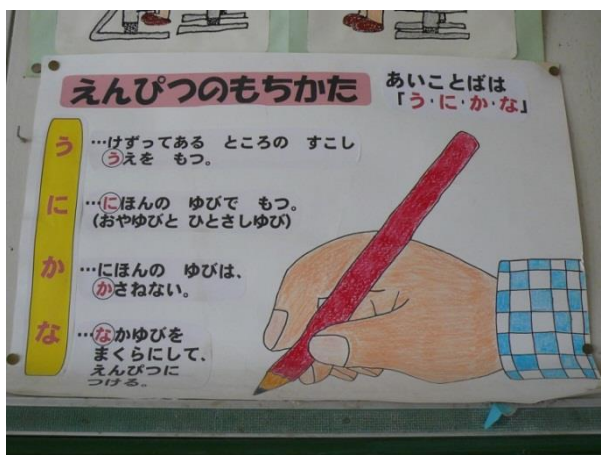 えんぴつのもちかた
あいことばは
「う・に・か・な」
う
…けずってある ところの すこし
うえを もつ。
に
…にほんの ゆびで もつ。
(おやゆびと ひとさしゆび)
か
…にほんの ゆびは、
かさねない。
な
…なかゆびを
まくらにして、
えんぴつに
つける。